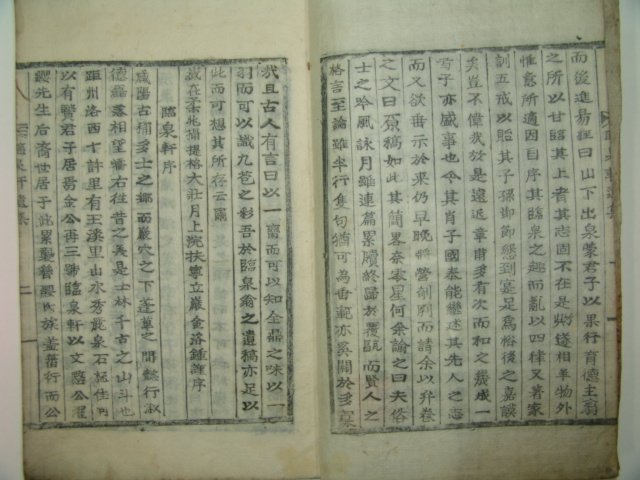 而後進易經曰山下出泉蒙君子以果行育德主翁
之所以甘臨其上者其志固不在是歟遂相羊物外
惟意所適因目序其臨泉之趣而亂以四律又著家
訓五戒以貽其子孫御節懇到塞足爲裕後之嘉謨
矣豈不偉我放是遠近章甫多有次而和之幾成一
子亦盛事也今其肖子國泰能繼述其先人之志
而又欲壽示於來仍早晚將營剞劂而請余以弁卷
之文曰原稿如此其簡畧奈寥星何余諭之曰夫俗
士之吟風詠月雖連篇累牘終歸於覆瓿而賢人之
格言至論雖半行隻句猶可爲垂範亦奚關於多寡
哉且古人有言曰以一臠而可以知全鼎之味以一
羽而可以識九苞之彩吾於臨泉翁之遺稿亦足以
此而可想其所存云爾
歲在柔兆攝提格大壯月上浣扶寧金洛鍾謹序
臨泉軒序
咸陽古稱多士之鄉而巖穴之下蓬蓽之間懿行淑
德磊落相望播右往昔之美是士林千古之山斗也
距州洛西十許里有玉溪里山水秀麗泉石桩佳
以有賢君子居焉金公再三號臨泉軒以文愍公濯
纓先生后裔世居于此累葉簪纓氏族蓄蕃衍而公
臨泉軒遺集
二